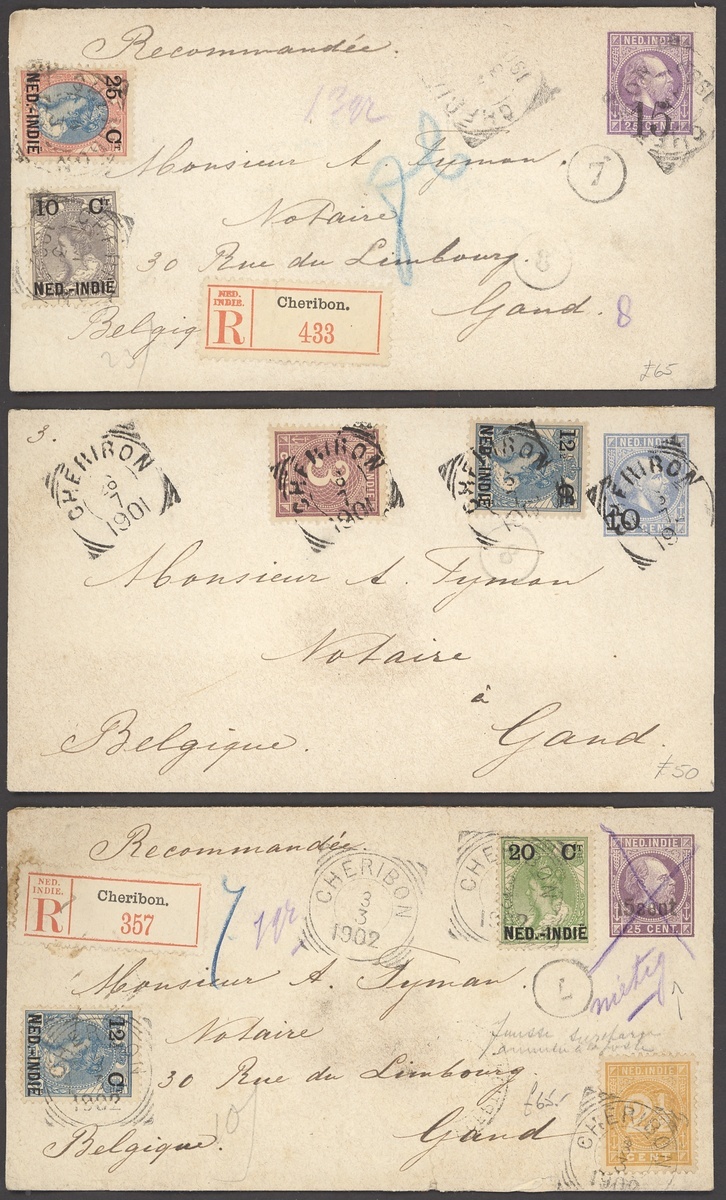 Recommandée.
NED. INDIE
15
25 CENT
25 Ct
NED.-INDIE
13gr
Monsieur A. Tyman.
7
10 Ct
NED.-INDIE
Notaire
30 Rue du Limbourg.
8
NED. INDIE.
R
Cheribon.
433
Gand.
8
Belgiq
£65
3.
CHERIBON
7
1901
3
CHERIBON
1901
12½ Ct
NED.-INDIE
CHERIBON
NED. INDIE
10
CENT
Monsieur A. Tyman
Notaire
à
Belgique.
Gand.
£50
Recommandée.
NED. INDIE.
R
Cheribon.
357
7gr
CHERIBON
3
3
1902
20 Ct
NED.-INDIE
CHERIBON
1902
NED. INDIE
15 cent
25 CENT
Monsieur A. Tyman.
7
nietig
12½ Ct
NED.-INDIE
1902
Notaire
fausse surcharge
30 Rue du Limbourg
£65.
NED. INDIE
2½
CENT
CHERIBON
1902
Belgique.
Gand